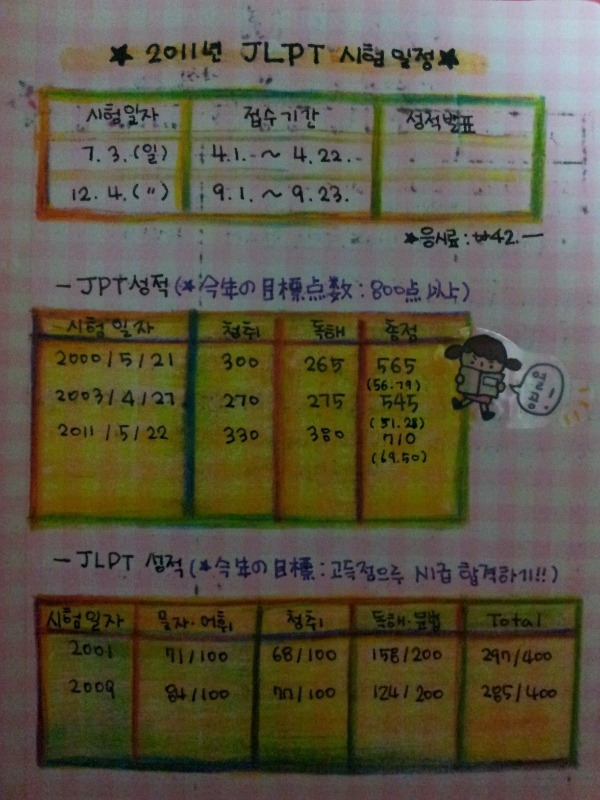 ★ 2011년 JLPT 시험일정★
시험일자 접수기간 성적발표
7. 3. (일) 4.1. ~ 4.22.
12. 4. (〃) 9.1. ~ 9.23.
★응시료 : ₩42.—
- JPT 성적 (★今年の目標点数 : 800点以上)
시험일자 청취 독해 총점
2000/5/21 300 265 565
(56.79)
2003/4/27 270 275 545
(51.28)
2011/5/22 330 380 710
(69.50)
- JLPT 성적 (★今年の目標 : 고득점으로 N1급 합격하기!!)
시험일자 문자·어휘 청취 독해·문법 Total
2001 71/100 68/100 158/200 297/400
2009 84/100 77/100 124/200 285/400